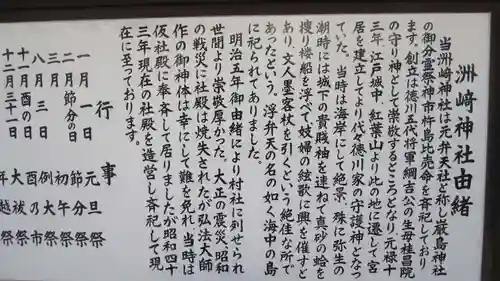 洲崎神社由緒
当洲崎神社は元弁天社と称し厳島神社
の御分霊祭神市杵島比売命を斉祀しており
ます。創立は徳川五代将軍綱吉公の生母桂昌院
の守り神として崇敬するところとなり、元禄十
三年、江戸城中、紅葉山より此の地に遷して宮
居を建立してより代々徳川家の守護神となっ
ていた。当時は海岸にして絶景、殊に弥生の
潮時には城下の貴賤袖を連ねて真砂の蛤を
捜り楼船を浮べて妓婦の絃歌に興を催すと
あり、文人墨客杖を引くという絶佳な所で
あったという。浮弁天の名の如く海中の島
に祀られてありました。
明治五年御由緒により村社に列せられ
世間より崇敬厚かった。大正の震災、昭和
の戦災に社殿は焼失されたが弘法大師
作の御神体は幸にして難を免れ、当時は
仮社殿に奉斉して居りましたが昭和四十
三年現在の社殿を造営し斉祀して現
在に至っております。
行事
一月一日 元旦祭
二月節分の日 節分祭
三月 初午祭
八月三日 例大祭
十一月酉の日 酉乃市
十二月三十一日 年越祭